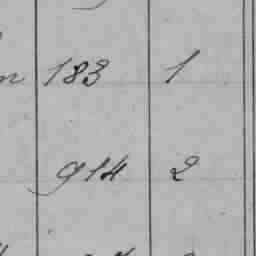 183 1
914 2